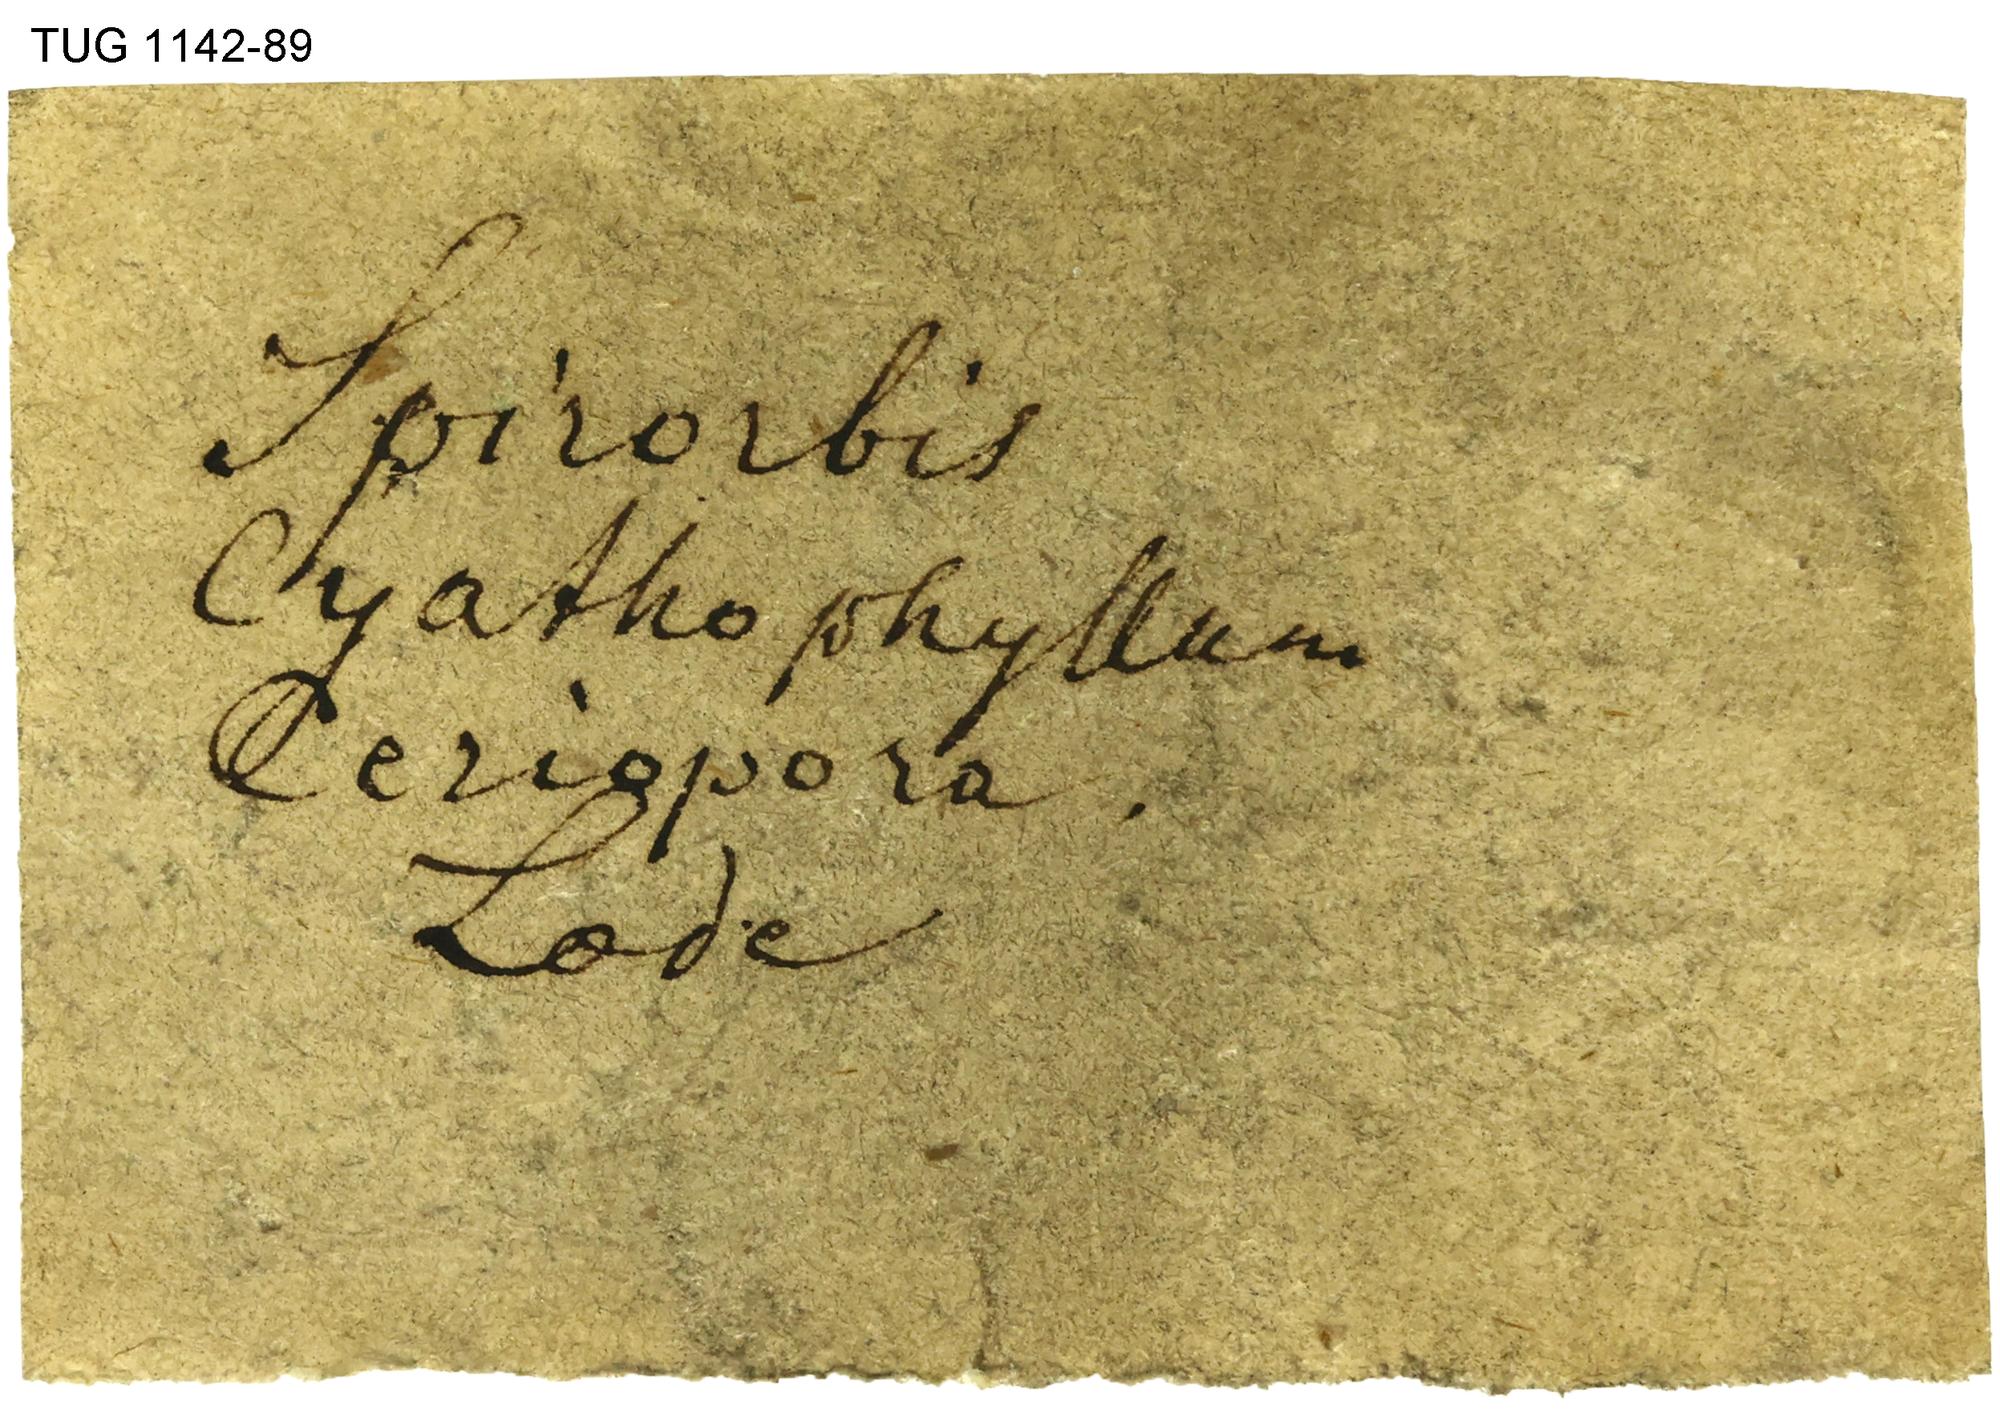 TUG 1142-89
Spirorbis
Cyathophyllum
Ceriopora.
Lode